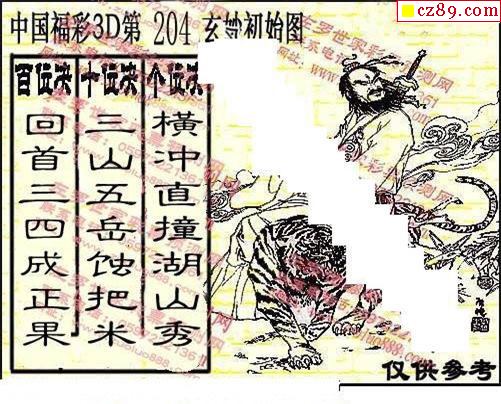 cz89.com
中国福彩3D第 204 玄妙初始图
百位决
回首三四成正果
十位决
三山五岳蚀把米
个位决
横冲直撞湖山秀
仅供参考